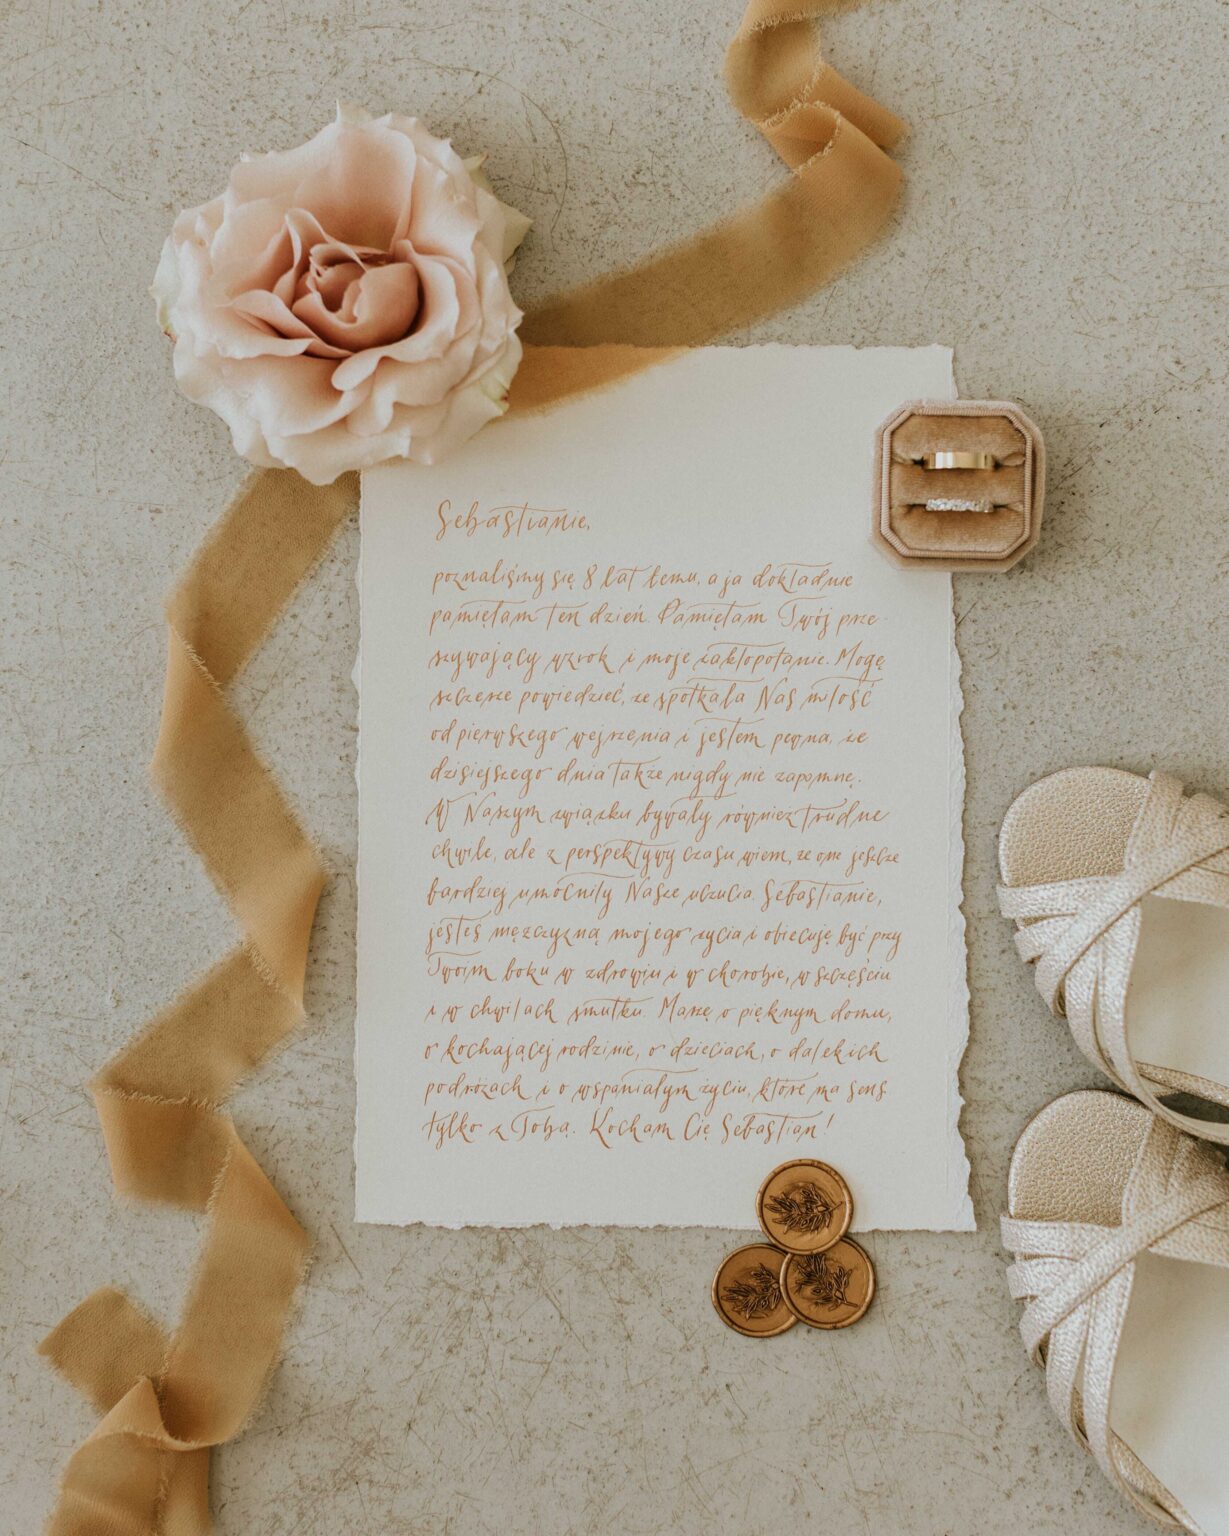 Sebastianie,
poznaliśmy się 8 lat temu, a ja dokładnie
pamiętam ten dzień. Pamiętam Twój prze-
szywający wzrok i moje zakłopotanie. Mogę
szczerze powiedzieć, że spotkała Nas miłość
od pierwszego wejrzenia i jestem pewna, że
dzisiejszego dnia także nigdy nie zapomnę.
W Naszym związku bywały również trudne
chwile, ale z perspektywy czasu wiem, że one jeszcze
bardziej umocniły Nasze uczucia. Sebastianie,
jesteś mężczyzną mojego życia i obiecuję być przy
Twoim boku w zdrowiu i w chorobie, w szczęściu
i w chwilach smutku. Marzę o pięknym domu,
o kochającej rodzinie, o dzieciach, o dalekich
podróżach i o wspaniałym życiu, które ma sens
tylko z Tobą. Kocham Cię Sebastian!